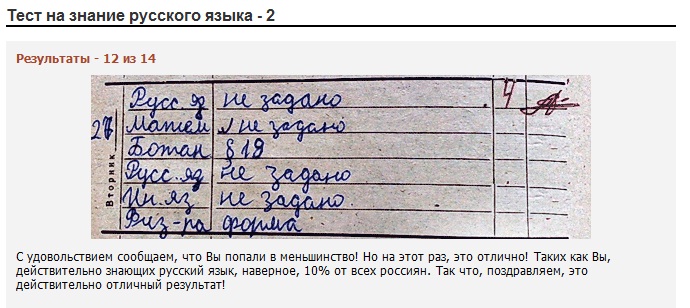 Тест на знание русского языка - 2
Результаты - 12 из 14
Русс. яз не задано 4
Матем не задано
Ботан § 19
Русс. яз не задано
Ин. яз не задано
Физ-ра форма
Вторник
С удовольствием сообщаем, что Вы попали в меньшинство! Но на этот раз, это отлично! Таких как Вы,
действительно знающих русский язык, наверное, 10% от всех россиян. Так что, поздравляем, это
действительно отличный результат!